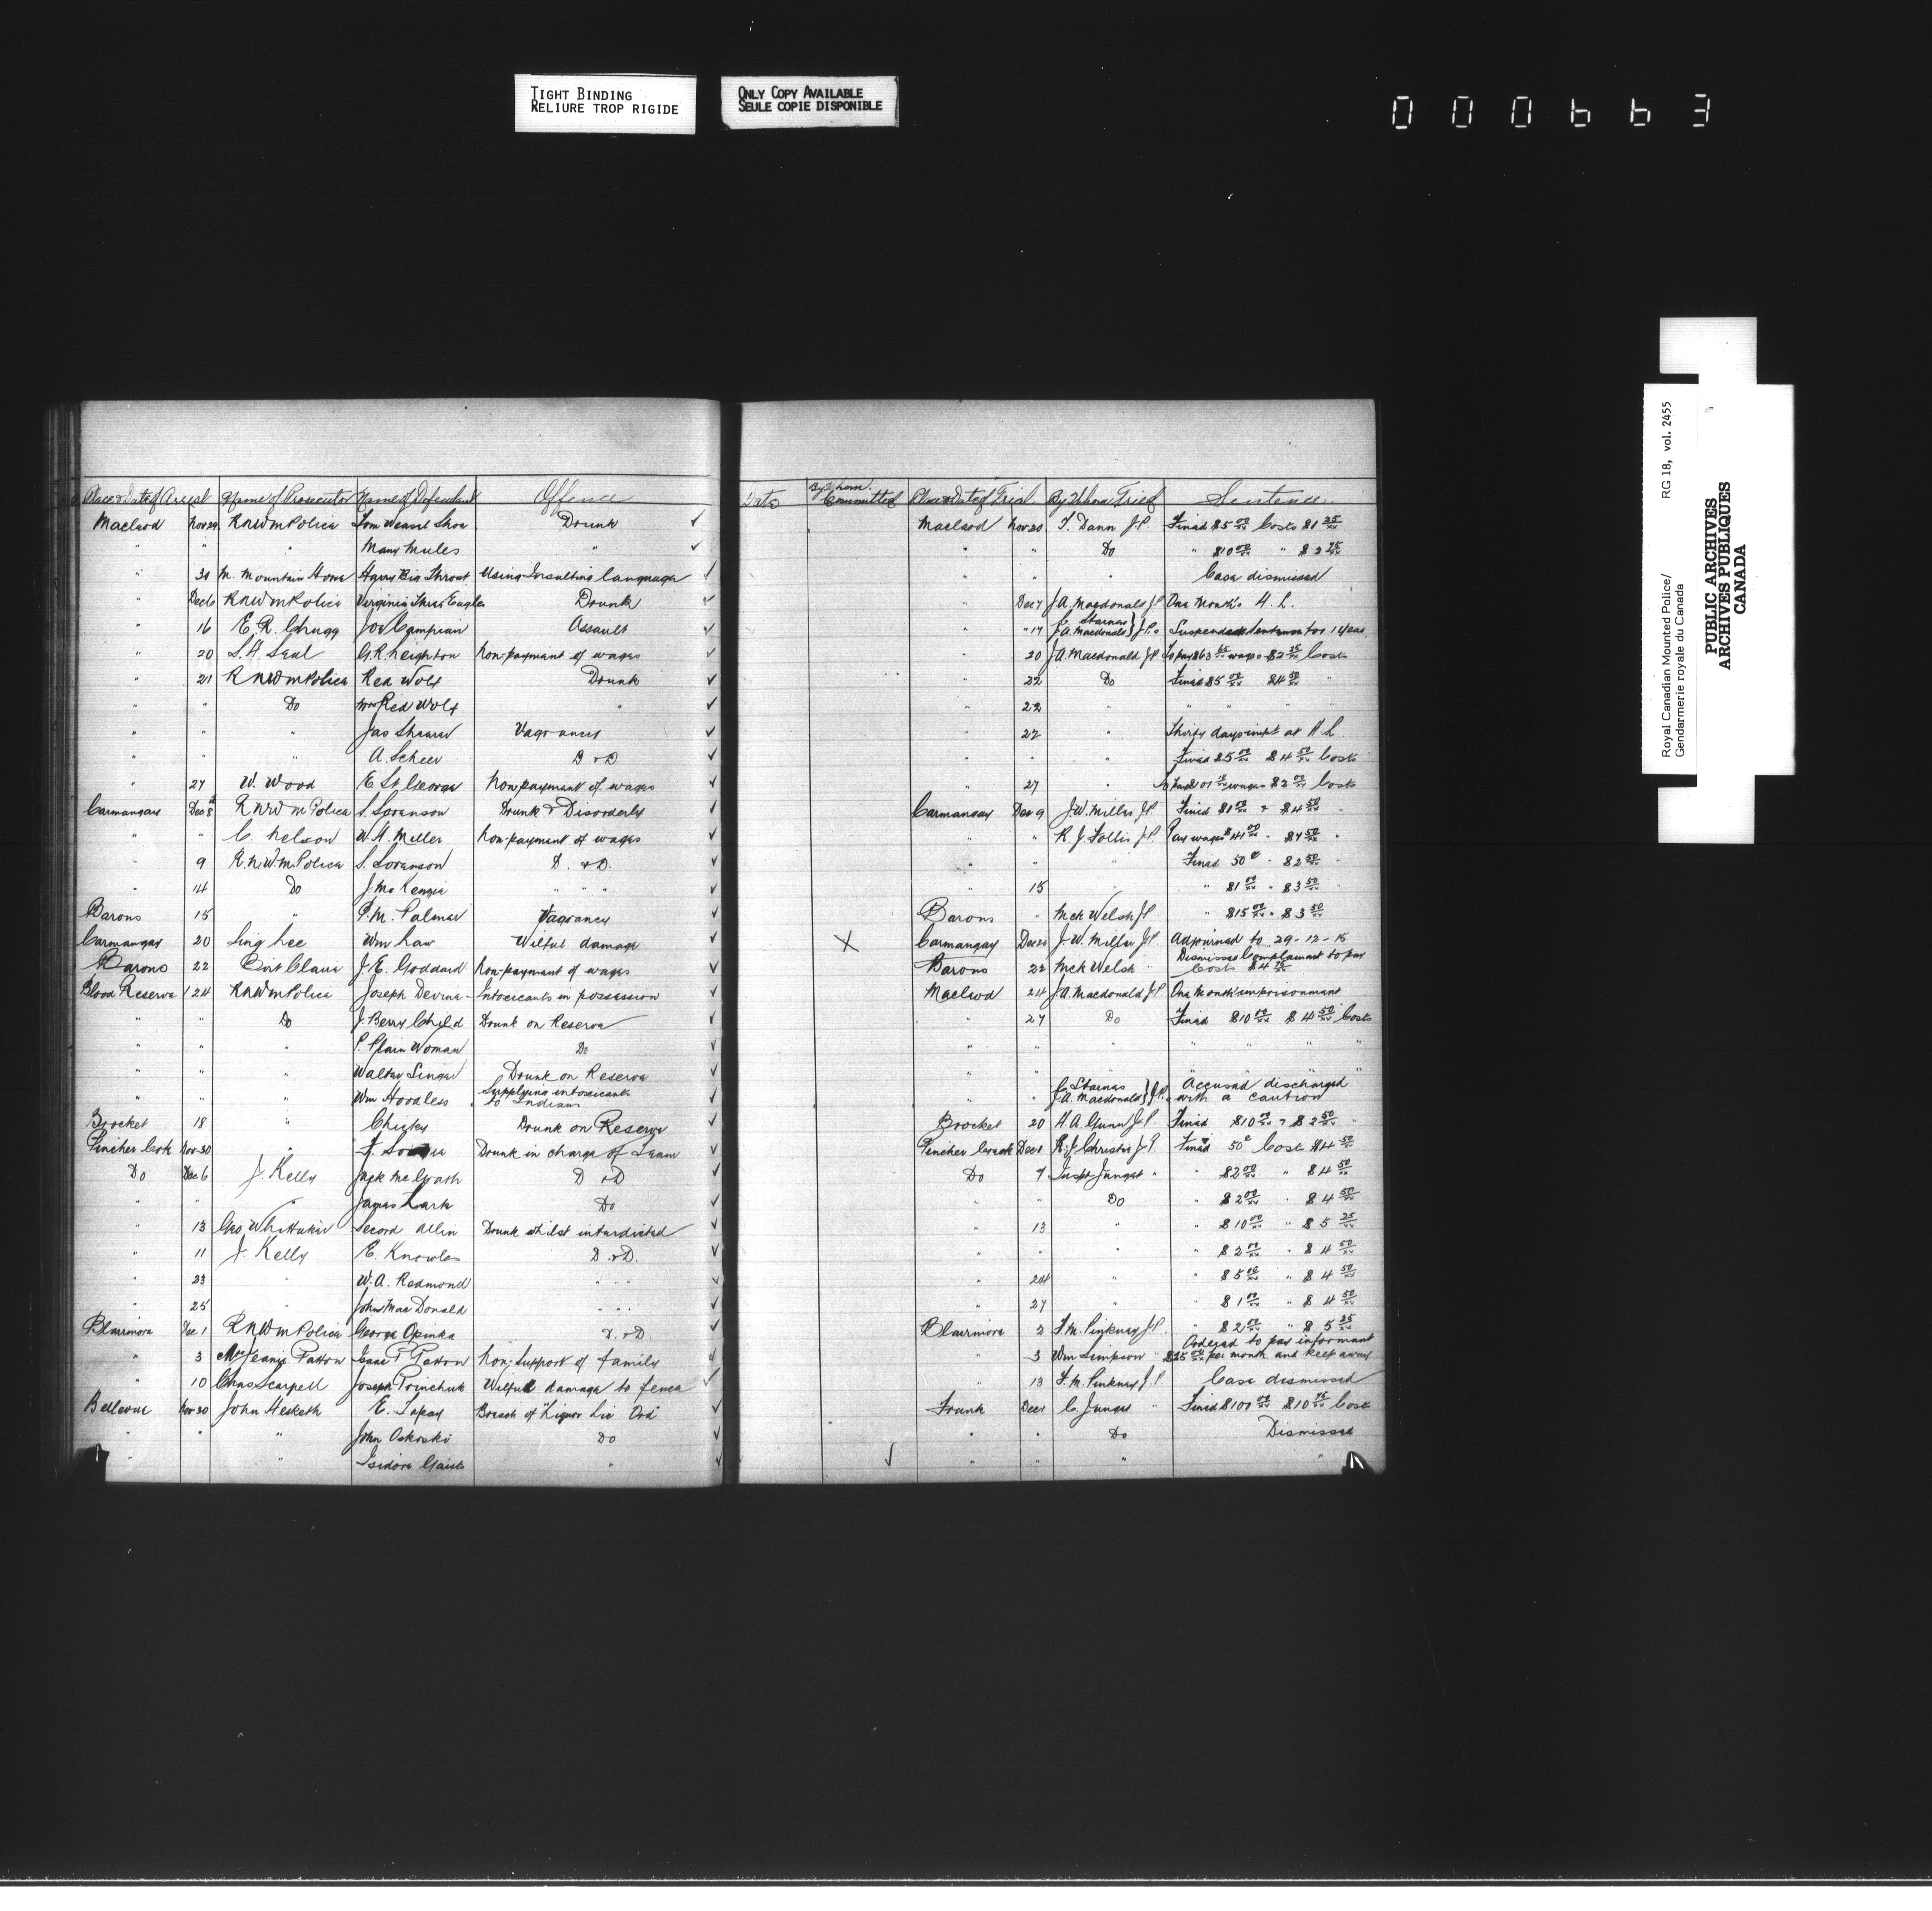 TIGHT BINDING
RELIURE TROP RIGIDE
ONLY COPY AVAILABLE
SEULE COPIE DISPONIBLE
000663
Royal Canadian Mounted Police/
Gendarmerie royale du Canada
RG 18, vol. 2455
PUBLIC ARCHIVES
ARCHIVES PUBLIQUES
CANADA
Place & Date of Arrest Name of Prosecutor Name of Defendant Offence Date By Whom Committed Place & Date of Trial By Whom Tried Sentence
Macleod Nov 29 RNWM Police Tom Weasel Shoe Drunk ✓ Macleod Nov 30 T. Dann J.P. Fined $5 00/xx Costs $1 25/xx
" " " Many Mules " ✓ " " Do " $10 00/xx " $2 75/xx
" 30 M. Mountain Horse Harry Big Throat Using Insulting language ✓ " " " Case dismissed
" Dec 6 RNWM Police Virginia Three Eagles Drunk ✓ " Dec 7 J.A. Macdonald J.P. One Month's H.L.
" 16 E.R. Chugg Joe Campian Assault ✓ " " 17 C. Starnes J.A. Macdonald } J.Ps Suspended Sentence for 1 year
" 20 S.H. Seal G.R. Leighton Non-payment of wages ✓ " 20 J.A. Macdonald J.P. To pay $63 wages $2 Costs
" 21 RNWM Police Red Wolf Drunk ✓ " 22 Do Fined $5 00/xx $4 50/xx "
" " Do Mrs Red Wolf " ✓ " 22 " " " " "
" " " Jas Shearer Vagrancy ✓ " 22 " Thirty days impt at H.L
" " " A. Scheer D & D ✓ " " " Fined $5 00/xx $4 50/xx Costs
" 27 W. Wood E. St. George Non-payment of wages ✓ " 27 " wages $2 00/xx Costs
Carmangay Dec 8 RNWM Police S. Soranson Drunk & Disorderly ✓ Carmangay Dec 9 J.W. Miller J.P. Fined $1 00/xx & $4 50/xx
" " C. Nelson W.H. Miller Non-payment of wages ✓ " " R.J. Follis J.P. Pay wages $41 00 " $4 50/xx "
" 9 R.N.W.M. Police S. Soranson D. & D. ✓ " " " Fined 50¢ " $2 50/xx "
" 14 Do J. McKenzie " " " ✓ " 15 " " $1 00/xx " $3 50/xx "
Barons 15 " P.M. Palmer Vagrancy ✓ Barons " McK Welsh J.P. " $15 00/xx " $3 50/xx
Carmangay 20 Sing Lee Wm Law Wilful damage ✓ X Carmangay Dec 20 J.W. Miller J.P. Adjourned to 29-12-15
Barons 22 Bert Clavir J.E. Goddard Non-payment of wages ✓ Barons 22 McK Welsh " Dismissed Complainant to pay
Costs $4 75/xx
Blood Reserve 24 RNWM Police Joseph Devine Intoxicants in possession ✓ Macleod 24 J.A. Macdonald J.P. One Month imprisonment
" " Do J. Berry Child Drunk on Reserve ✓ " 27 Do Fined $10 00/xx $4 50/xx Costs
" " " P. Plain Woman Do ✓ " " " " " " "
" " " Walter Singer Drunk on Reserve ✓ " " " " "
" " " Wm Hoodless Supplying intoxicants to Indians ✓ C. Starnes J.A. Macdonald } J.Ps Accused discharged with a caution
Brocket 18 " Chicky Drunk on Reserve ✓ Brocket 20 H.A. Gunn J.P. Fined $10 00 & $2 50/xx "
Pincher Crk Nov 30 " F. Drunk in charge of Team ✓ Pincher Creek Dec 1 R.J. Christie J.P. Fined 50¢ Cost $4 50
Do Dec 6 J. Kelly Jack McGrath D & D ✓ Do 7 Inspt Junget " " $2 00/xx " $4 50/xx
" " " James Lark Do ✓ " " Do " $2 00/xx " $4 50/xx
" 13 Geo Whittaker Secord Allin Drunk whilst interdicted ✓ " 13 " " $10 00/xx " $5 25/xx
" 11 J. Kelly E. Knowles D. & D. ✓ " " " " $2 00/xx " $4 50/xx
" 23 " W.A. Redmond " " " ✓ " 24 " " $5 00/xx " $4 50/xx
" 25 " John MacDonald " " " ✓ " 27 " " $1 00/xx " $4 50/xx
Blairmore Dec 1 RNWM Police George Opinka D. & D. ✓ Blairmore 2 F.M. Pinkney J.P. " $2 00/xx " $5 25/xx
" 3 Mrs Jeanie Patton Isaac T Patton Non-support of family ✓ " 3 Wm Simpson " Ordered to pay informant
$25 00/xx per month and keep away
" 10 Chas Scarpell Joseph Princhuk Wilful damage to fence ✓ " 13 F.M. Pinkney J.P. Case dismissed
Bellevue Nov 30 John Hesketh E. Tapay Breach of "Liquor Lic Ord" ✓ Frank Dec 1 C. Junget " Fined $100 00 $10 75/xx Costs
" " " John Oskoski Do ✓ " " Do Dismissed
" " " Isidore " ✓ ✓ " " " "